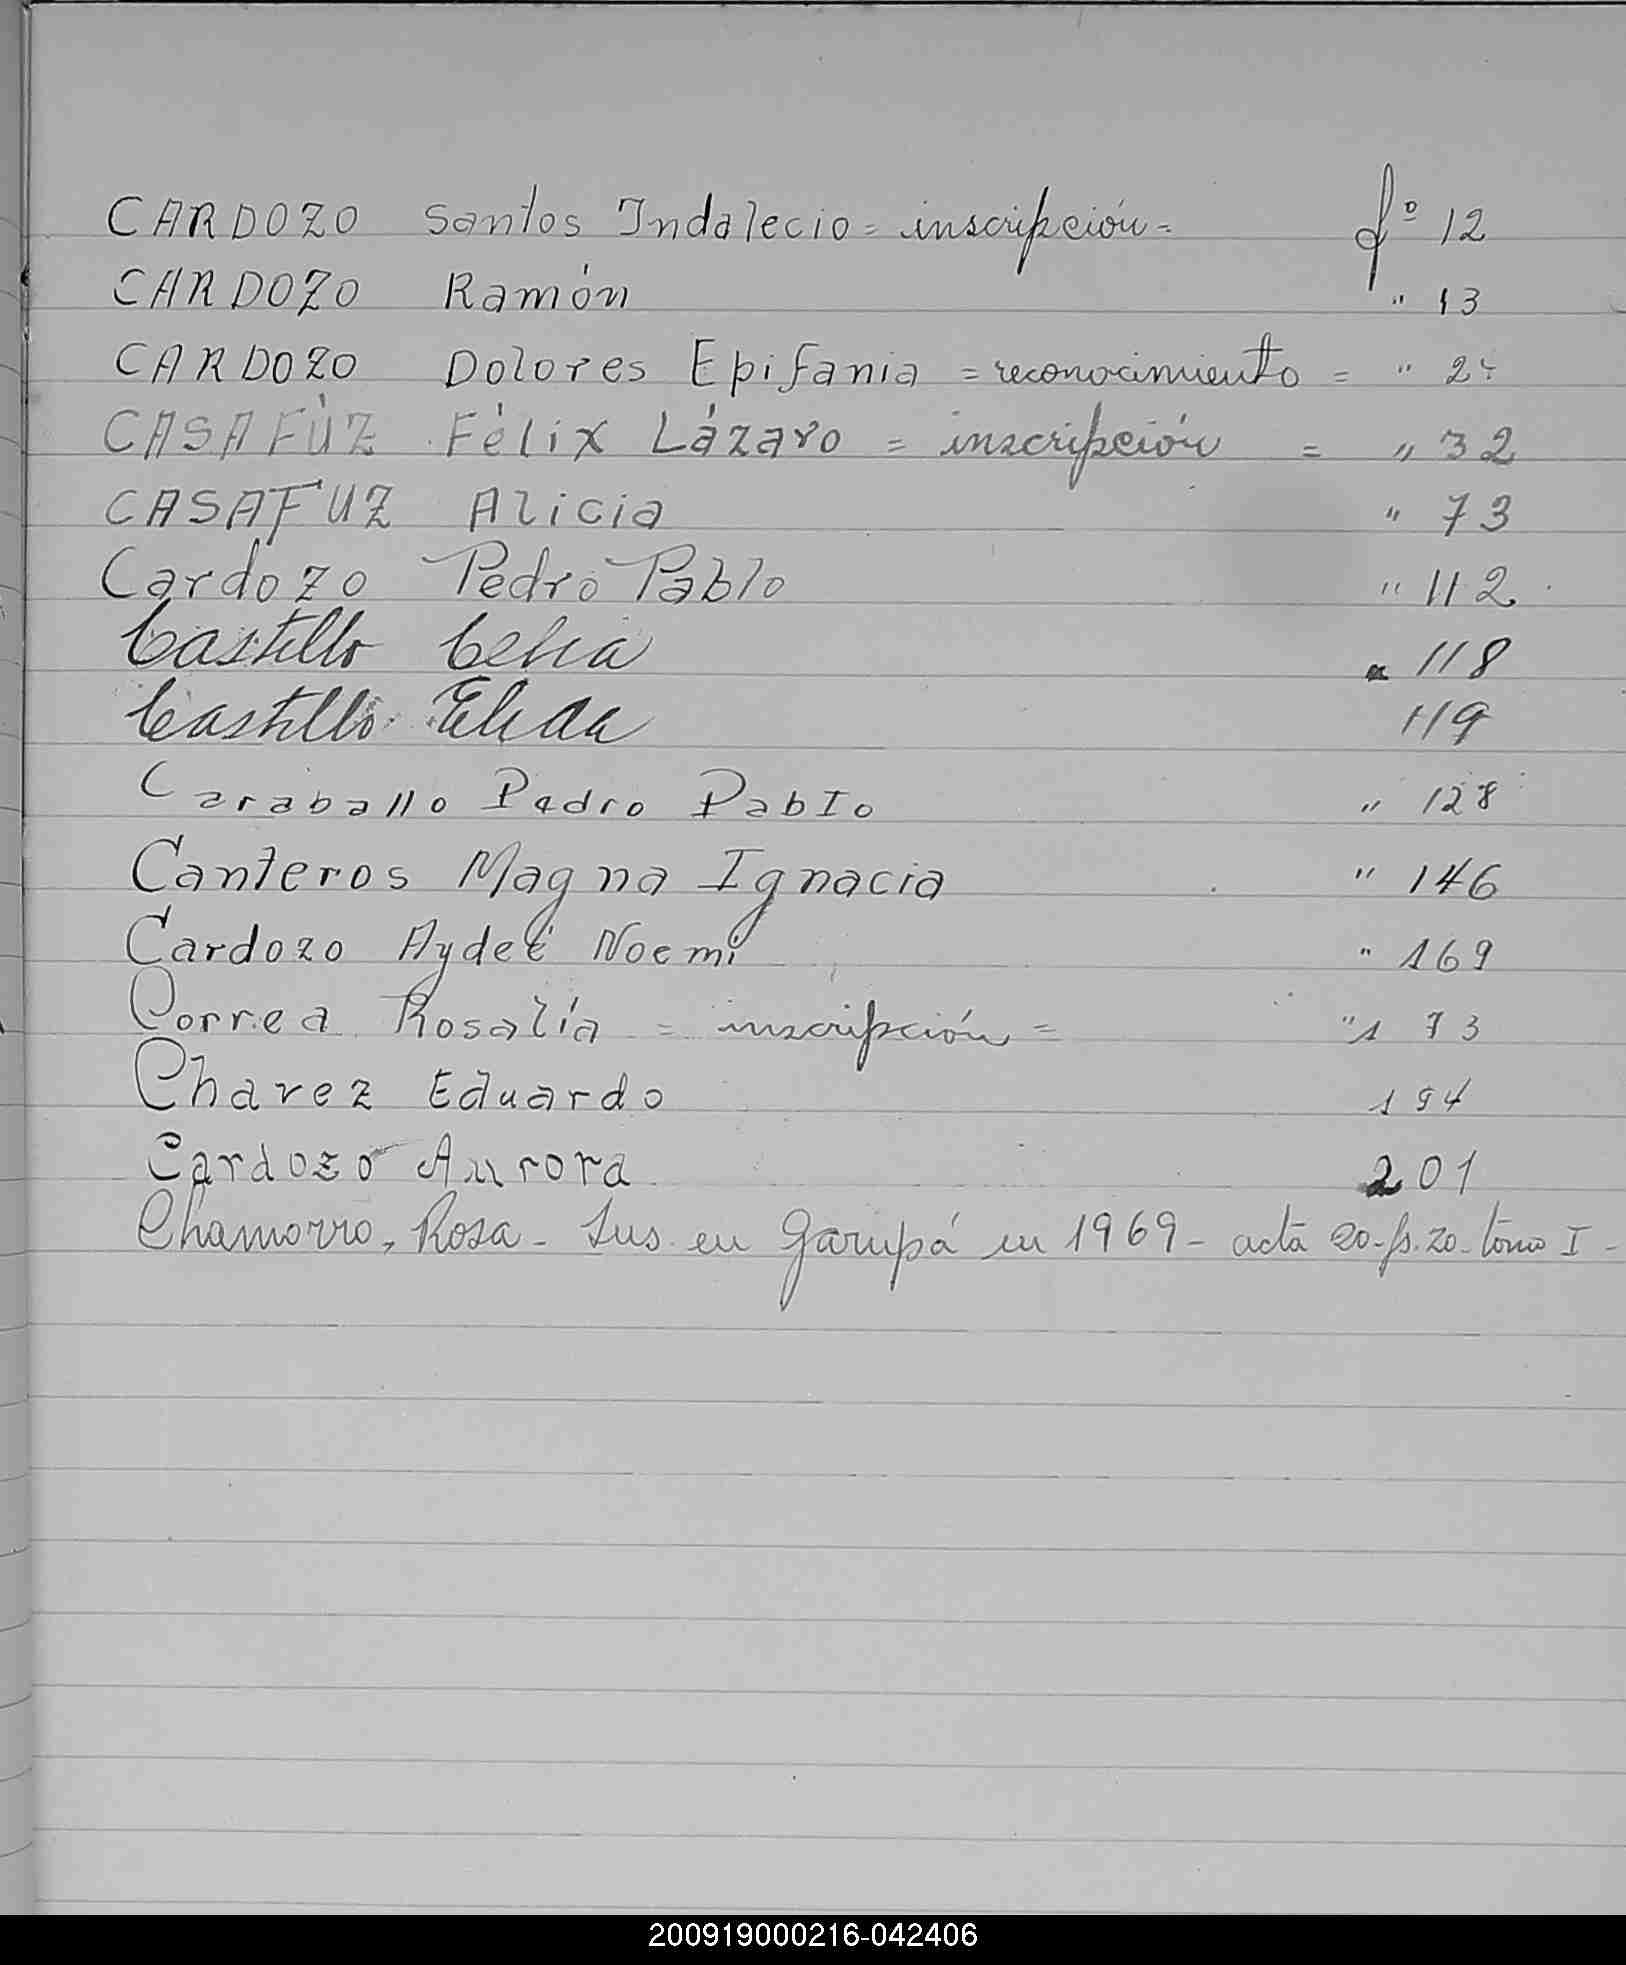 CARDOZO Santos Indalecio = inscripción = fº 12
CARDOZO Ramón " 13
CARDOZO Dolores Epifania = reconocimiento = "
CASAFÚZ Félix Lázaro = inscripción = " 32
CASAFUZ Alicia " 73
Cardozo Pedro Pablo " 112
Castillo Celia " 118
Castillo Elida 119
Caraballo Pedro Pablo " 128
Canteros Magna Ignacia " 146
Cardozo Aydeé Noemi " 169
Correa Rosalía = inscripción = " 173
Chavez Eduardo 194
Cardozo Aurora 201
Chamorro, Rosa - Ins. en Garupá en 1969 - acta 20 - fs. 20 - tomo I -
200919000216-042406